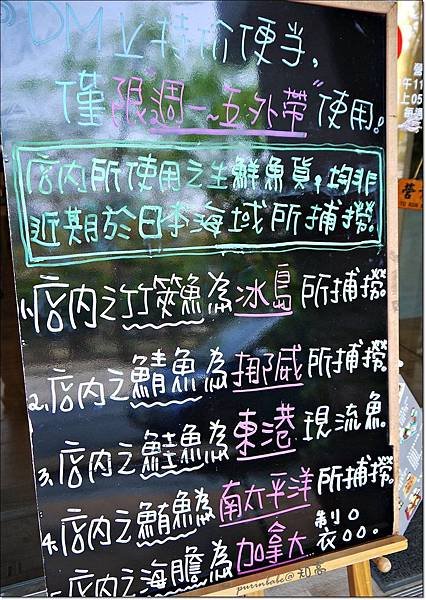 @DM上特价便当,
僅限"週一~五外帶"使用。
店内所使用之生鮮魚貨,均非
近期於日本海域所捕撈。
1.店内之竹筴魚為冰島所捕撈。
2.店内之鯖魚為挪威所捕撈。
3.店内之鮭魚為東港現流魚。
4.店内之鮪魚為南太平洋所捕撈。
5.店内之海膽為加拿大
purinbabe@
營
午11
上05